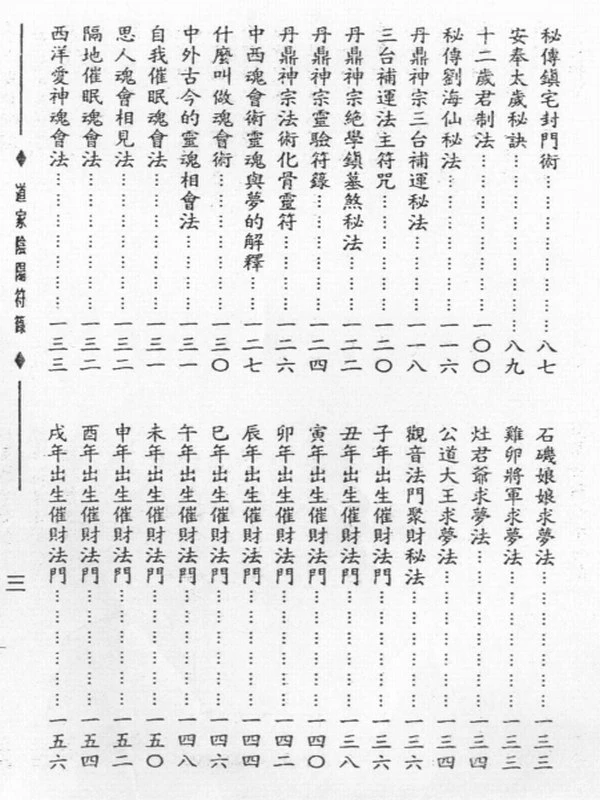 秘傳鎮宅封門術……………………八七
安奉太歲秘訣……………………八九
十二歲君制法……………………一〇〇
秘傳劉海仙秘法…………………一一六
丹鼎神宗三台補運秘法……………一一八
三台補運法主符咒…………………一二〇
丹鼎神宗絕學鎮墓煞秘法…………一二二
丹鼎神宗靈驗符籙…………………一二四
丹鼎神宗法術化骨靈符……………一二六
中西魂會術靈魂與夢的解釋………一二七
什麼叫做魂會術…………………一三〇
中外古今的靈魂相會法……………一三一
自我催眠魂會法…………………一三一
思人魂會相見法…………………一三二
隔地催眠魂會法…………………一三二
西洋愛神魂會法…………………一三三
石磯娘娘求夢法…………………一三三
雞卵將軍求夢法…………………一三三
灶君爺求夢法……………………一三四
公道大王求夢法…………………一三四
觀音法門聚財秘法…………………一三六
子年出生催財法門…………………一三六
丑年出生催財法門…………………一三八
寅年出生催財法門…………………一四〇
卯年出生催財法門…………………一四二
辰年出生催財法門…………………一四四
巳年出生催財法門…………………一四六
午年出生催財法門…………………一四八
未年出生催財法門…………………一五〇
申年出生催財法門…………………一五二
酉年出生催財法門…………………一五四
戌年出生催財法門…………………一五六
道家陰陽符籙
三